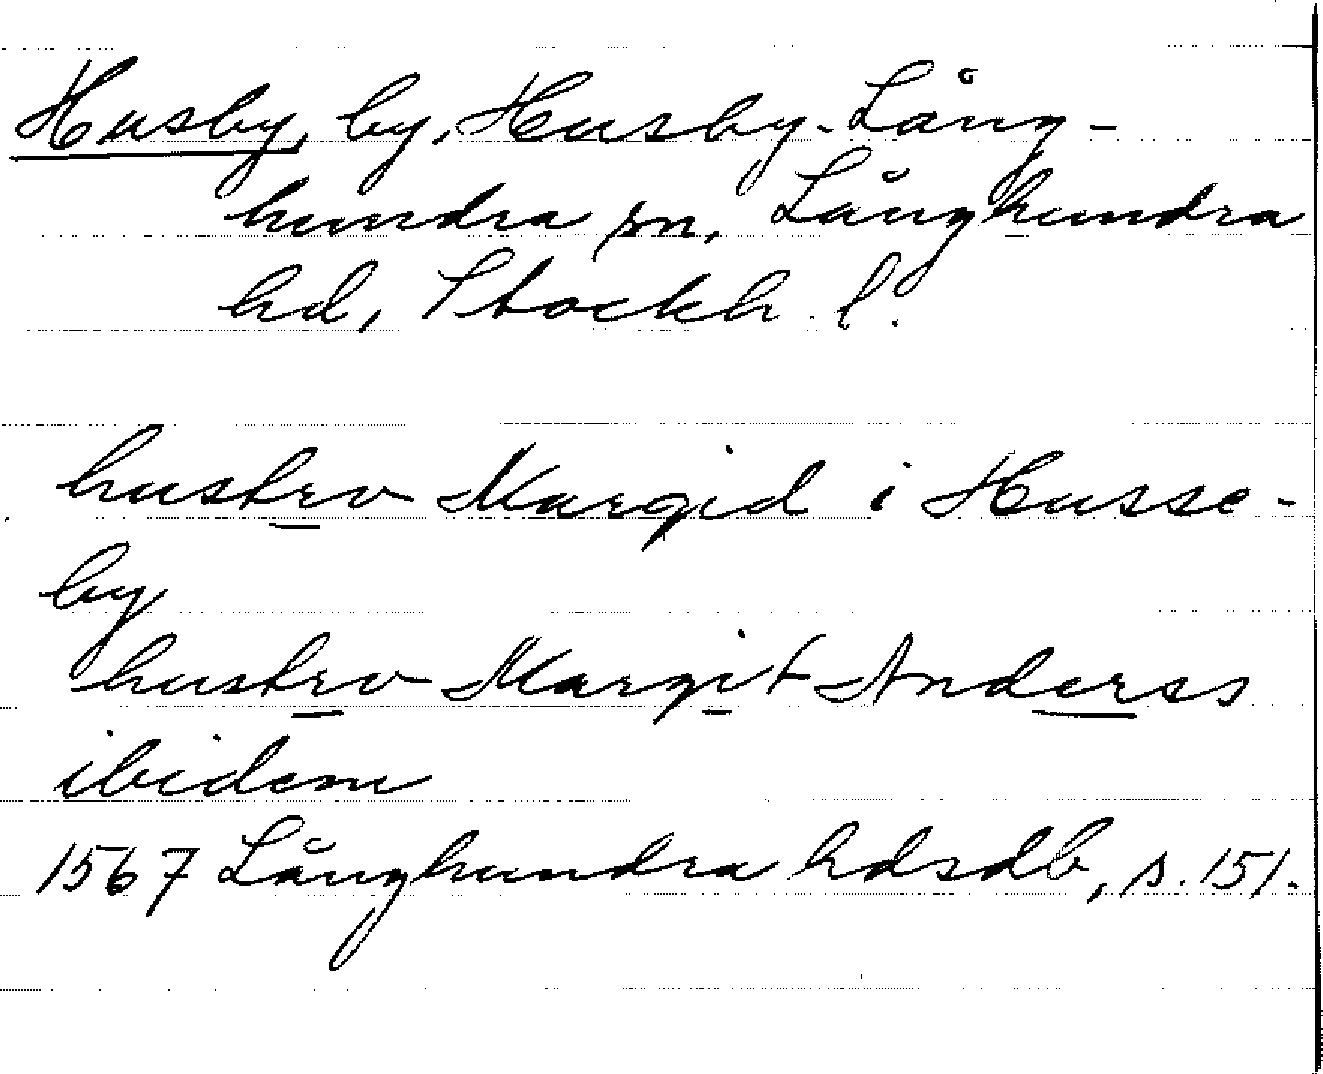 Husby, by, Husby-Lång-
hundra sn, Långhundra
hd, Stockh. l.
hustrv Margid i Husse-
by
hustrv Margit Anderss
ibidem
1567 Långhundra hdsdb, s. 151.